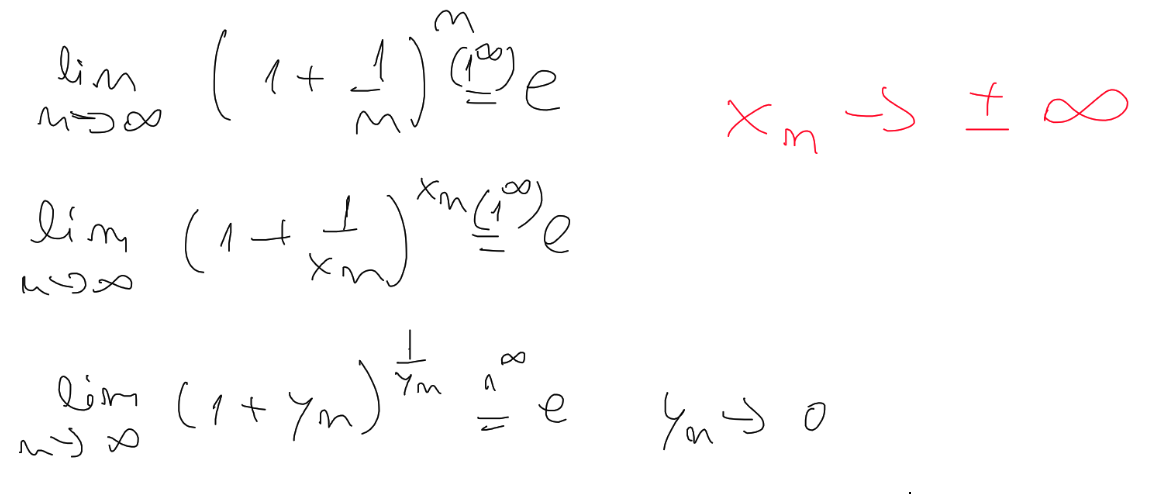 lim n→∞ (1 + 1/n)^n (1^∞)= e
x_n → ± ∞
lim n→∞ (1 + 1/x_n)^x_n (1^∞)= e
lim n→∞ (1 + y_n)^(1/y_n) 1^∞= e y_n → 0